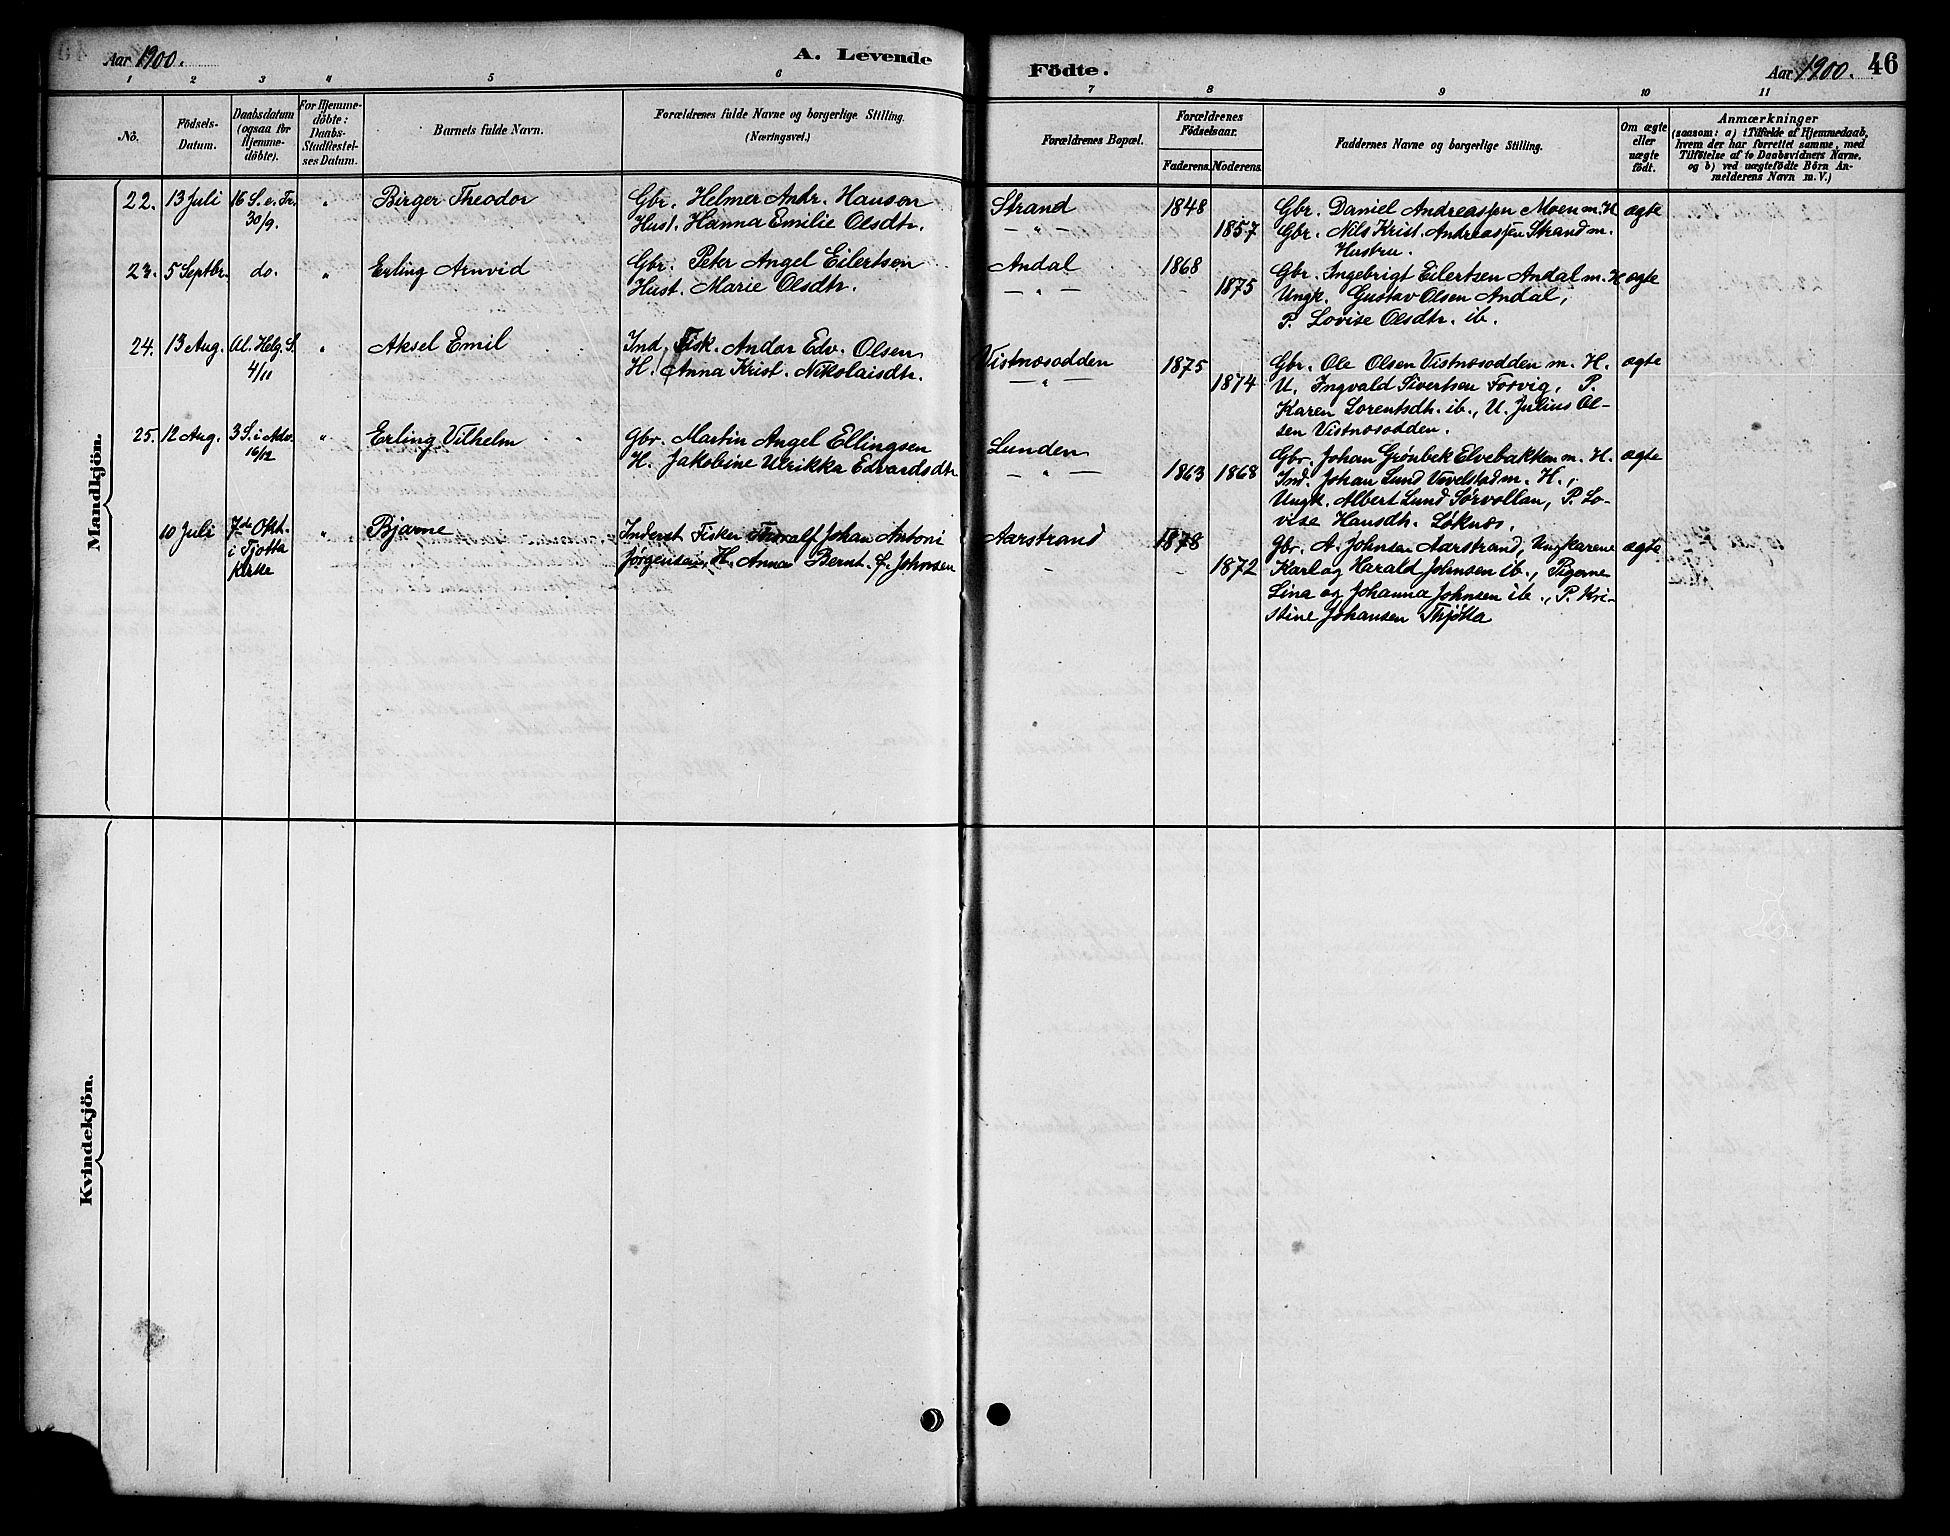 Aar 1900. A. Levende Födte. Aar 1900. 46
1 2 3 4 5 6 7 8 9 10 11
No.
Födsels-
Datum.
Daabsdatum
(ogsaa for
Hjemme-
döbte).
For Hjemme-
döbte:
Daabs-
Stadfæstel-
ses Datum.
Barnets fulde Navn.
Forældrenes fulde Navne og borgerlige Stilling.
(Næringsvei.)
Forældrenes Bopæl.
Forældrenes
Födselsaar.
Faderens. Moderens.
Faddernes Navne og borgerlige Stilling.
Om ægte
eller
uægte
födt.
Anmærkninger
(saasom: a) i Tilfælde af Hjemmedaab,
hvem der har forrettet samme, med
Tilföielse af to Daabsvidners Navne,
og b) ved uægtefödte Börn An-
melderens Navn m. V.)
Mandkjön.
22. 13 Juli 16 S. e. Tr. " Birger Theodor Gbr. Helmer Andr. Hanson Strand 1848 Gbr. Daniel Andreassen Moen m. H ægte
30/9. Hust. Hanna Emilie Olsdtr. — " — 1857 Gbr. Nils Krist. Andreassen Strand m.
Hustru.
23. 5 Septbr. do. " Erling Arnvid Gbr. Peter Angel Eilertsen Andal 1868 Gbr. Ingebrigt Eilertsen Andal m. H ægte
Hust. Marie Olsdtr. — " — 1875 Ungk. Gustav Olsen Andal,
P. Lovise Olsdtr. ib.
24. 13 Aug. Al. Helg. S. " Aksel Emil Ind. Fisk. Andor Edv. Olsen Vistnæsodden 1875 Gbr. Ole Olsen Vistnæsodden m. H. ægte
4/11 H. Anna Krist. Nikolaisdtr. — " — 1874 U. Ingvald Sivertsen Forvig, P.
Karen Lorentsdtr. ib., U. Julius Ol-
sen Vistnæsodden.
25. 12 Aug. 3 S. i Adv. " Erling Vilhelm Gbr. Martin Angel Ellingsen Lunden Gbr. Johan Grønbek Elvebakken m. H. ægte
16/12 H. Jakobine Ulrikka Edvardsdtr — " — 1863 1868 Ind. Johan Lund Vevelstad m. H.,
Ungk. Albert Lund Sørvollan, P. Lo-
vise Hansdtr. Løknæs.
10 Juli 7de Okt. " Bjarne Inderst Fisker Thoralf Johan Antoni Aarstrand 1878 Gbr. A. Johnsen Aarstrand, Ungkarene ægte
i Tjøtta Jørgensen, H. Anna Bernt. f. Johnsen 1872 Karl og Harald Johnsen ib., Pigerne
Kirke Lina og Johanna Johnsen ib., P. Kri-
stine Johansen Thjøtta
Kvindekjön.